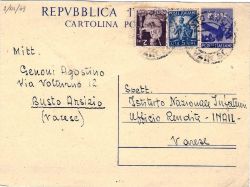 2/11/49
REPVBBLICA IT
CARTOLINA PO
Mitt.
Genoni Agostino
Via Volturno 12
Busto Arsizio
(Varese)
Spett.
Istituto Nazionale Infortuni
Ufficio Rendite - INAIL -
Varese